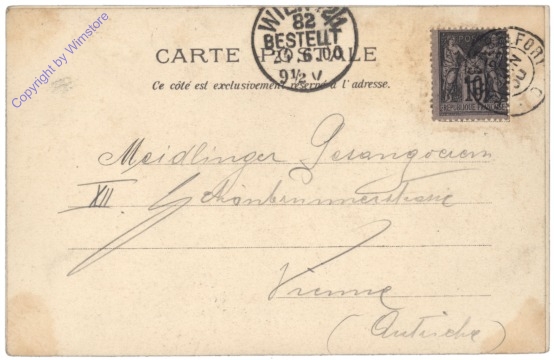 Copyright by Wimstore
WIEN
82
BESTELLT
20 6 00
9½ V
CARTE POSTALE
Ce côté est exclusivement réservé à l'adresse.
10
REPUBLIQUE FRANÇAISE
Meidlinger Gesangverein
XII Schönbrunnerstrasse
Vienne
(Autriche)